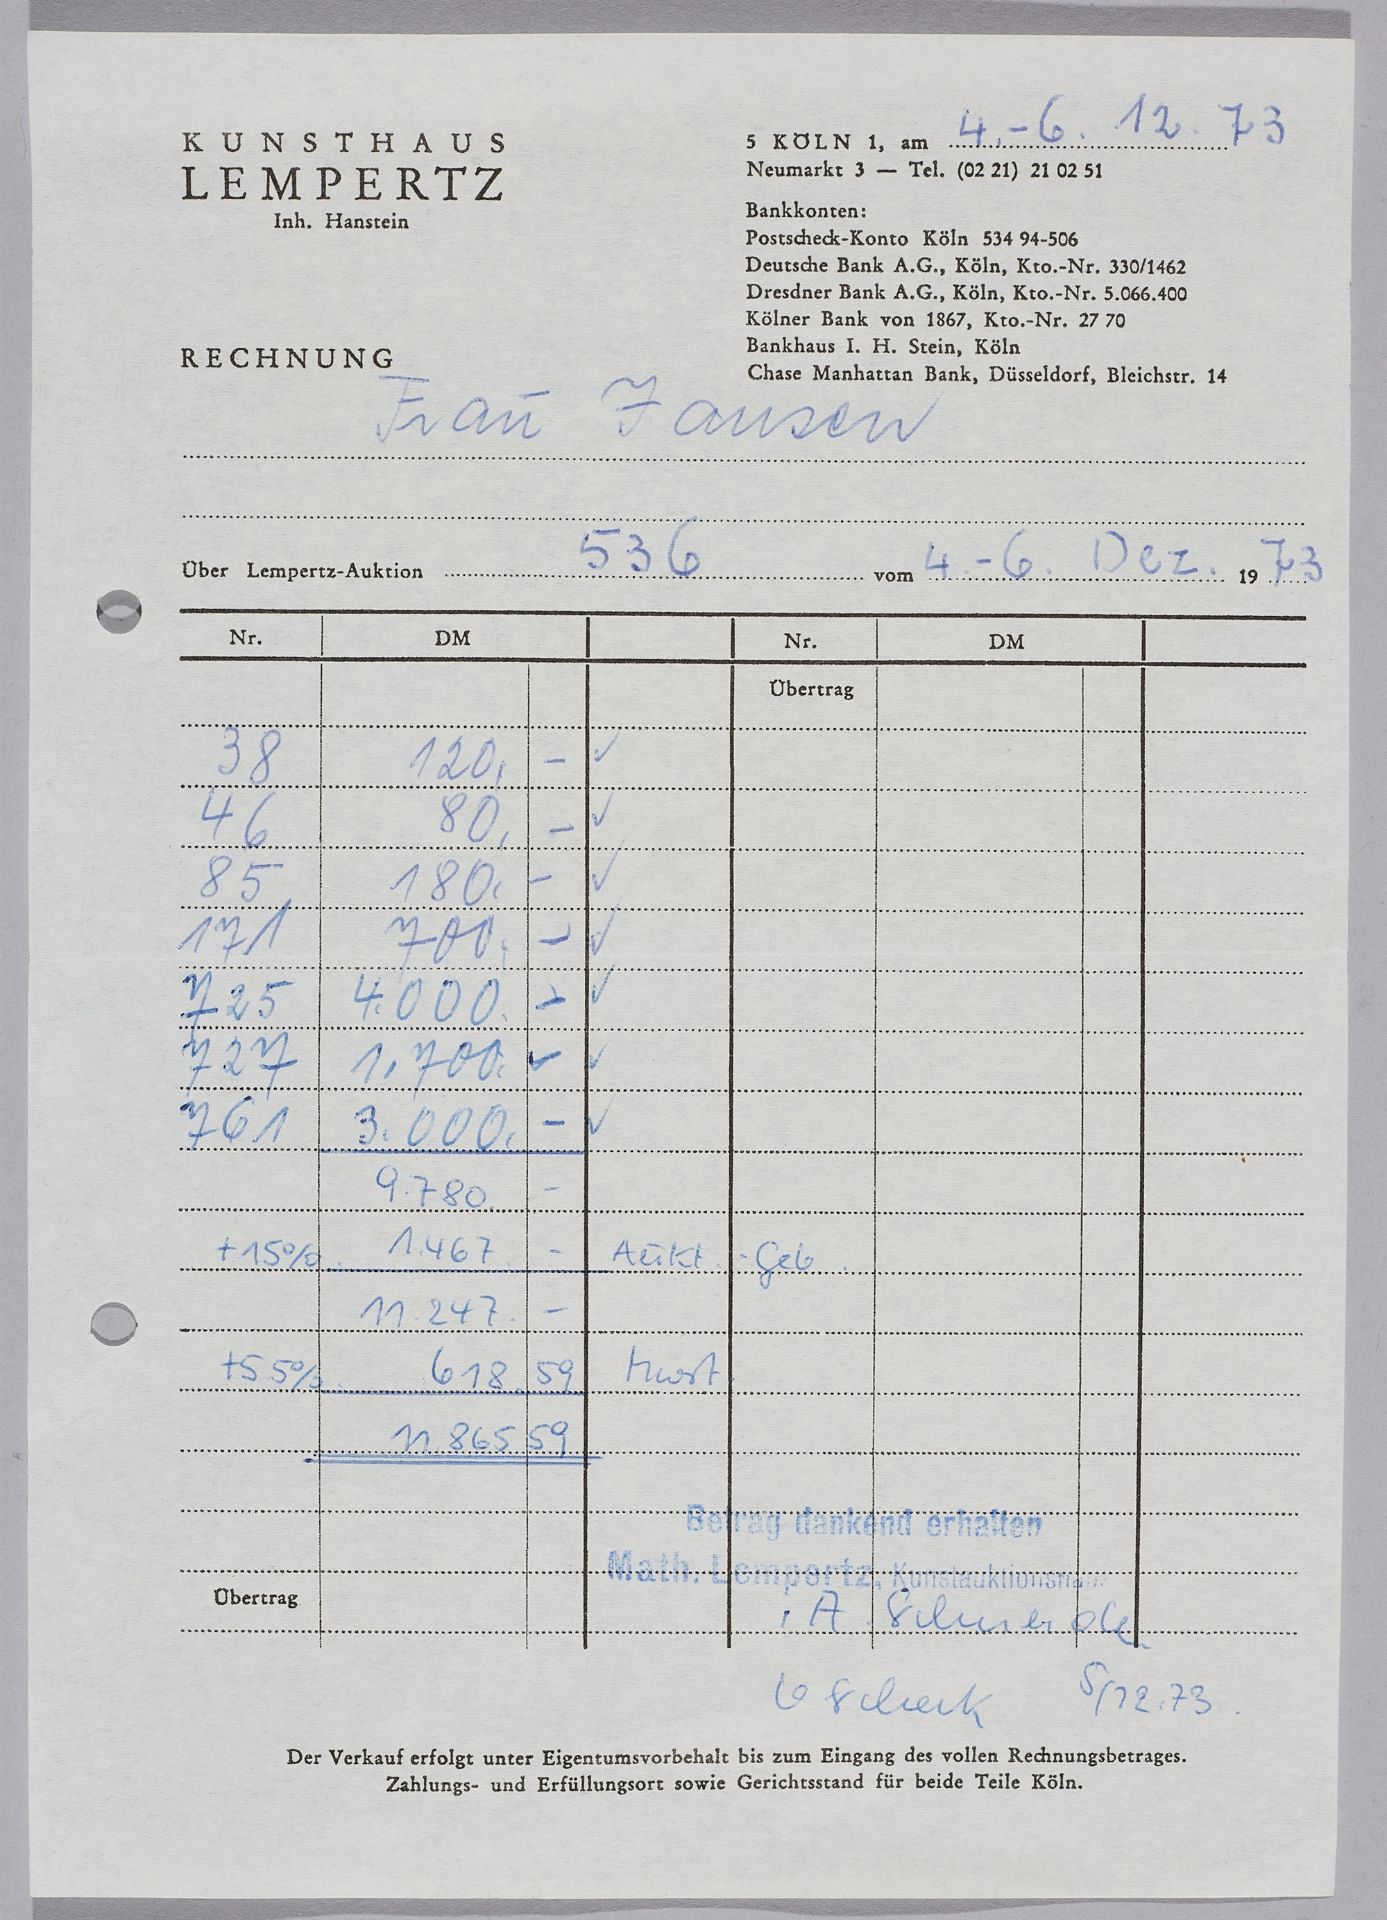 KUNSTHAUS
LEMPERTZ
Inh. Hanstein
5 KÖLN 1, am 4.-6. 12. 73
Neumarkt 3 — Tel. (02 21) 21 02 51
Bankkonten:
Postscheck-Konto Köln 534 94-506
Deutsche Bank A.G., Köln, Kto.-Nr. 330/1462
Dresdner Bank A.G., Köln, Kto.-Nr. 5.066.400
Kölner Bank von 1867, Kto.-Nr. 27 70
Bankhaus I. H. Stein, Köln
Chase Manhattan Bank, Düsseldorf, Bleichstr. 14
RECHNUNG
Frau Jansen
Über Lempertz-Auktion 536 vom 4.-6. Dez. 1973
Nr. DM Nr. DM
Übertrag
38 120,- ✓
46 80,- ✓
85 180,- ✓
171 700,- ✓
725 4.000.- ✓
727 1.700.- ✓
761 3.000.- ✓
9.780.-
+15% 1.467.- Aukt.-Geb.
11.247.-
+5 5% 618.59 Mwst.
11 865 59
Betrag dankend erhalten
Math. Lempertz, Kunstauktionshaus
Übertrag
i A
Scheck 5/12.73.
Der Verkauf erfolgt unter Eigentumsvorbehalt bis zum Eingang des vollen Rechnungsbetrages.
Zahlungs- und Erfüllungsort sowie Gerichtsstand für beide Teile Köln.